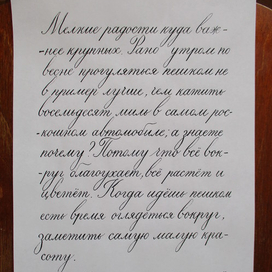 Мелкие радости куда важ-
-нее крупных. Рано утром по
весне прогуляться пешком не
в пример лучше, чем катить
восемьдесят миль в самом рос-
-кошном автомобиле, а знаете
почему? Потому что всё вок-
-руг благоухает, всё растёт и
цветёт. Когда идёшь пешком
есть время оглядеться вокруг,
заметить самую малую кра-
соту.